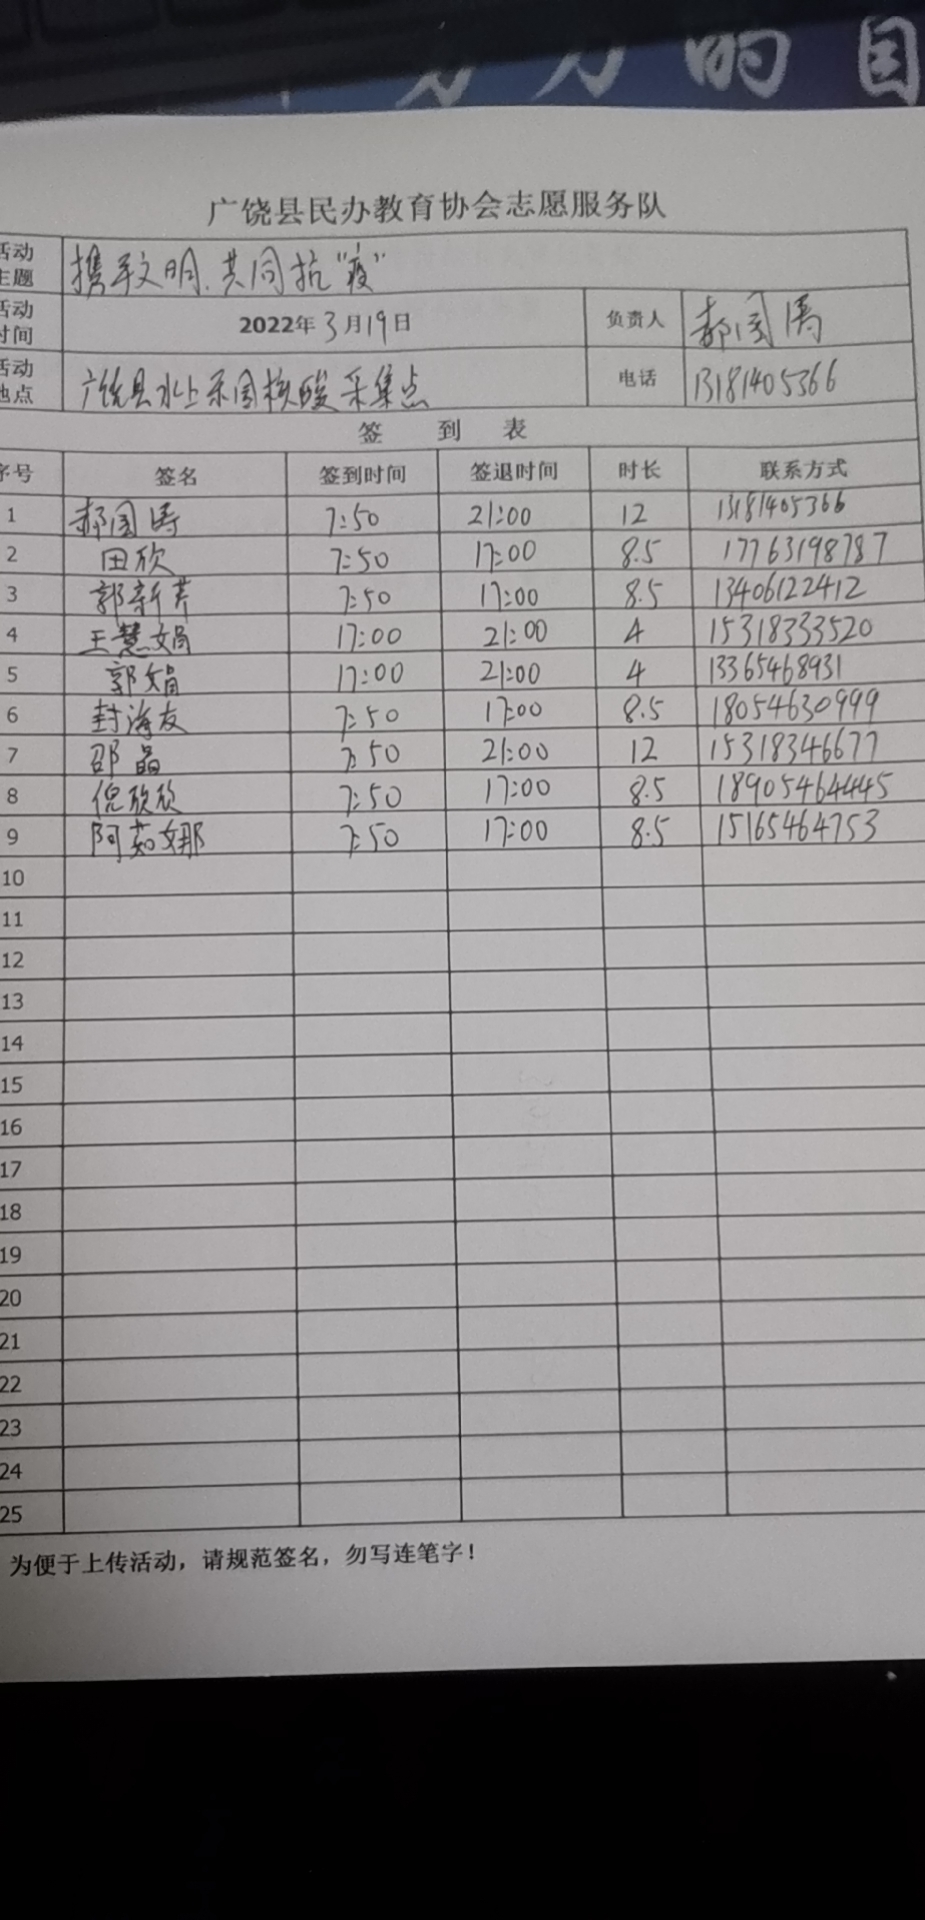 的目
广饶县民办教育协会志愿服务队
活动主题 携手文明.共同抗“疫”
活动时间 2022年3月19日 负责人 郝国涛
活动地点 广饶县水上乐园核酸采集点 电话 13181405366
签 到 表
序号 签名 签到时间 签退时间 时长 联系方式
1 郝国涛 7:50 21:00 12 13181405366
2 田欣 7:50 17:00 8.5 17763198787
3 郭新芹 7:50 17:00 8.5 13406122412
4 王慧娟 17:00 21:00 4 15318333520
5 郭娟 17:00 21:00 4 13365468931
6 封海友 7:50 17:00 8.5 18054630999
7 邵晶 7:50 21:00 12 15318346677
8 倪欣欣 7:50 17:00 8.5 18905464445
9 阿茹娜 7:50 17:00 8.5 15165464753
10
11
12
13
14
15
16
17
18
19
20
21
22
23
24
25
为便于上传活动，请规范签名，勿写连笔字！